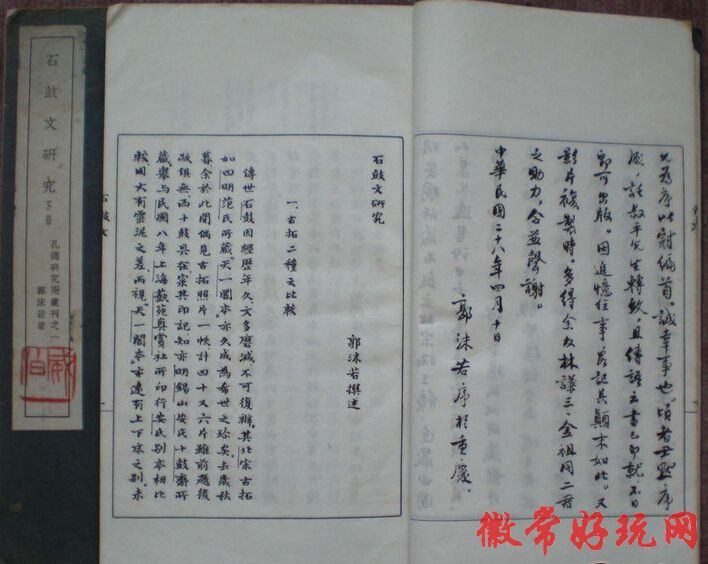 石鼓文研究 下冊
孔德研究所叢刊之一
郭沫若著
序以冠編首,誠幸事也。頃者尹默序
成,託叔平先生轉致,且傳語云書已印就,不日
即可出版。因追憶往事,略記其顛末如此。又
影片複製時,多得余友林謙三、金祖同二君
之助力,合並聲謝。
中華民國二十八年四月十日
郭沫若序於重慶。
石鼓文研究
郭沫若撰述
一、古拓二種之比較
傳世石鼓因經歷年久,文多磨滅,不可復辨,其北宋古拓
如四明范氏所藏天一閣本亦久成為希世之珍矣。去歲秋
暮余於此間偶見古拓照片一帙計四十又六片雖前題後
跋俱無而十鼓具在案其印記知亦明錫山安氏十鼓齋所
藏舉与民國八年上海藝苑真賞社所印行安氏別本相比
較固大有雲泥之差而視天一閣本,亦遠有上下床之別。未
石鼓文
徽常好玩网